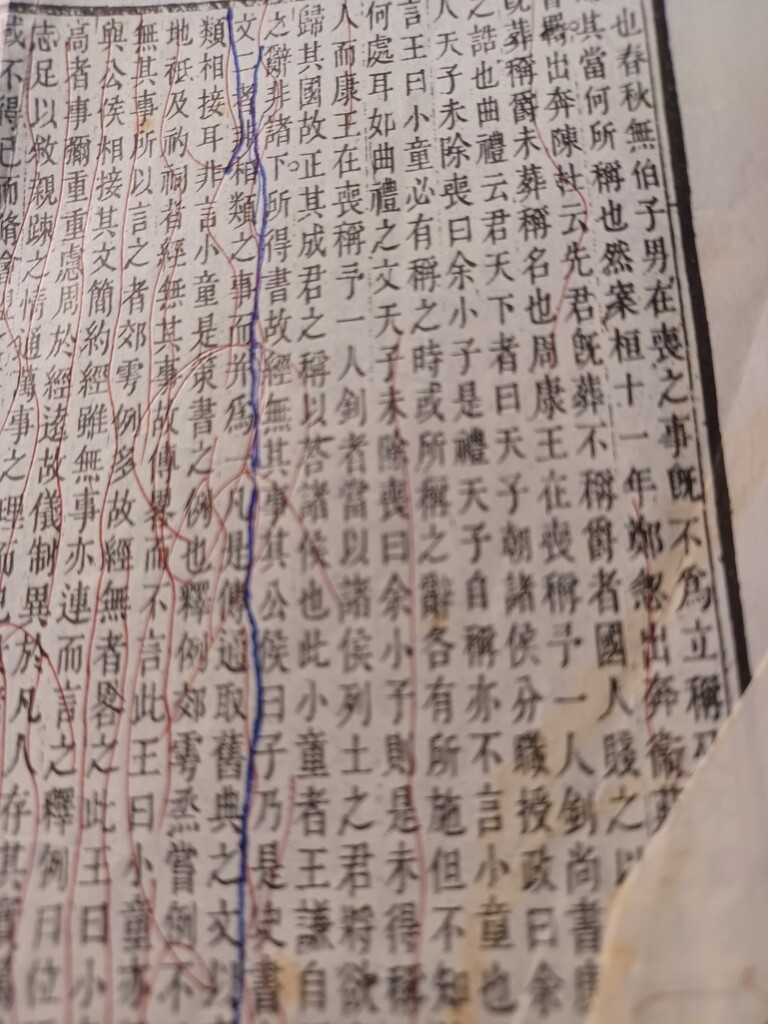 也春秋無伯子男在喪之事既不為立稱
其當何所稱也然案桓十一年鄭忽出奔衛
爵出奔陳杜云先君既葬不稱爵者國人賤之以
既葬稱爵未葬稱名也周康王在喪稱予一人釗尚書
之誥也曲禮云君天下者曰天子朝諸侯分職授政曰余
人天子未除喪曰余小子是禮天子自稱亦不言小童也
言王曰小童必有稱之時或所稱之辭各有所施但不知
何處耳如曲禮之文天子未除喪曰余小子則是未得稱
人而康王在喪稱予一人釗者當以諸侯列土之君將欲
歸其國故正其成君之稱以荅諸侯也此小童者王謙自
之辭非諸下所得書故經無其事其公侯曰子乃是史書
文二者非相類之事而并為一凡是傳通取舊典之文以
類相接耳非言小童是策書之例也釋例郊雩烝嘗例不
地祇及礿祠者經無其事故傳畧而不言此王曰小童亦
無其事所以言之者郊雩例多故經無者畧之此王曰小
與公侯相接其文簡約經雖無事亦連而言之釋例曰位
高者事彌重重慮周於經遠故儀制異於凡人存其實
志足以敘親踈之情通萬事之理而已
或不得已而脩會